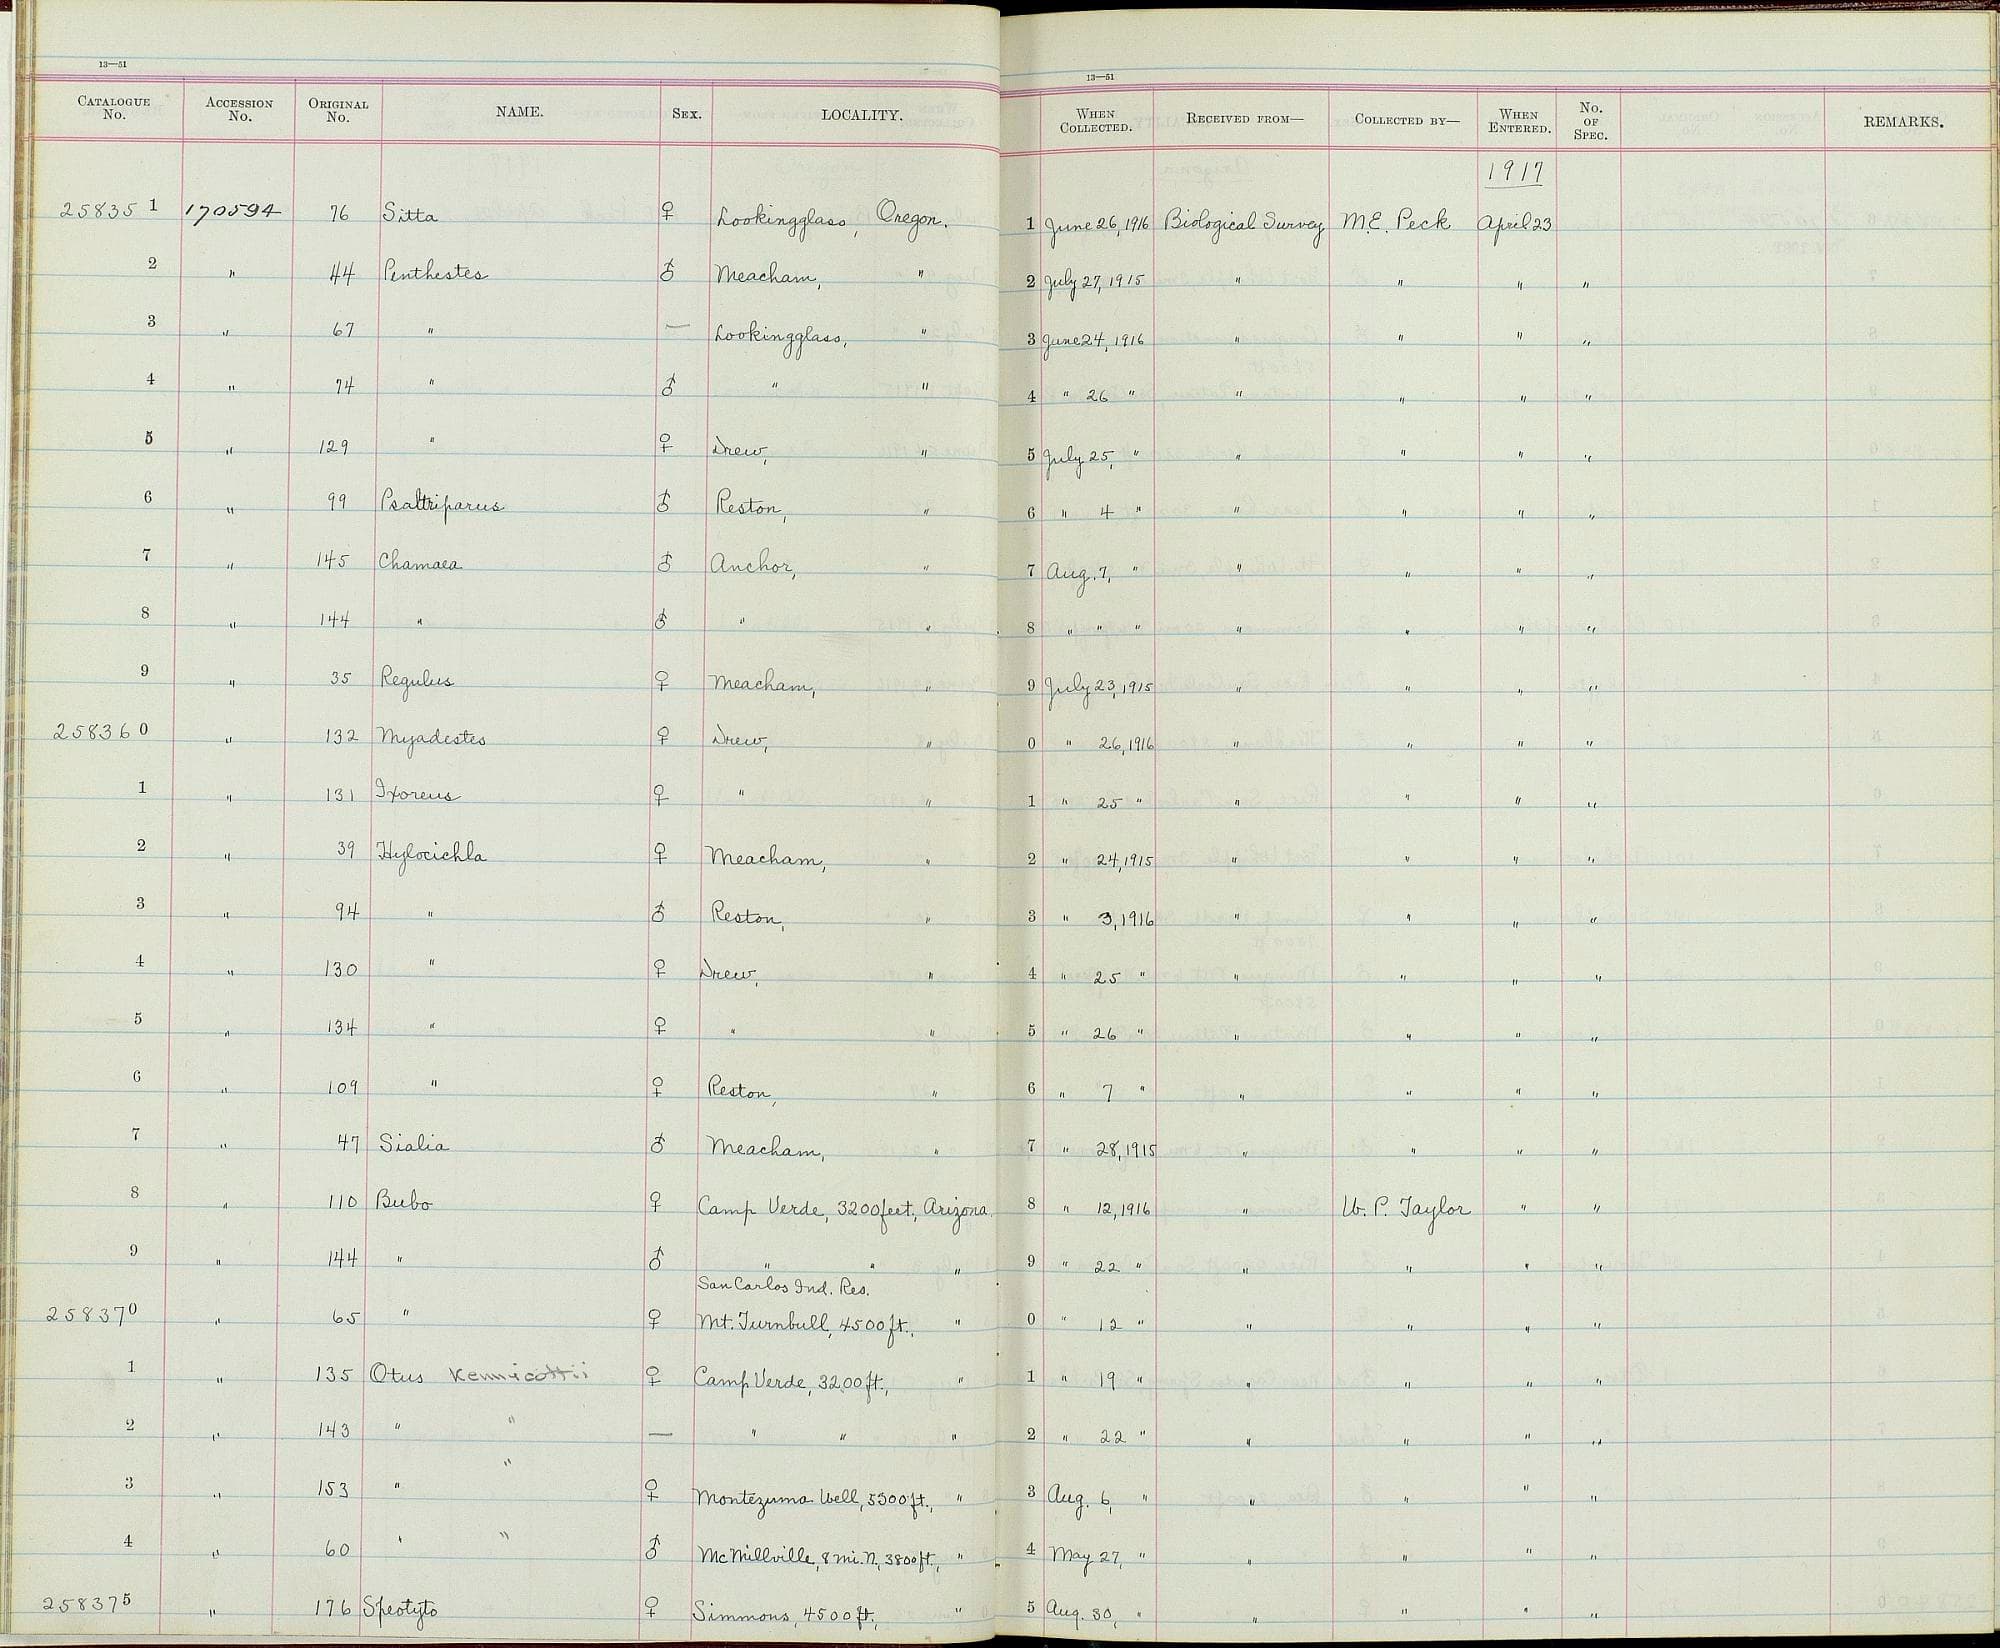 13—51
13—51
CATALOGUE No. ACCESSION No. ORIGINAL No. NAME. SEX. LOCALITY. WHEN COLLECTED. RECEIVED FROM— COLLECTED BY— WHEN ENTERED. No. OF SPEC. REMARKS.
1917
258351 170594 76 Sitta ♀ Lookingglass, Oregon. 1 June 26, 1916 Biological Survey M.E. Peck April 23
2 " 44 Penthestes ♂ Meacham, " 2 July 27, 1915 " " " "
3 " 67 " — Lookingglass, " 3 June 24, 1916 " " " "
4 " 74 " ♂ " " 4 " 26 " " " " "
5 " 129 " ♀ Drew, " 5 July 25, " " " " "
6 " 99 Psaltriparus ♂ Reston, " 6 " 4 " " " " "
7 " 145 Chamaea ♂ Anchor, " 7 Aug. 7, " " " " "
8 " 144 " ♂ " " 8 " " " " " " "
9 " 35 Regulus ♀ Meacham, " 9 July 23, 1915 " " " "
258360 " 132 Myadestes ♀ Drew, " 0 " 26, 1916 " " " "
1 " 131 Ixoreus ♀ " " 1 " 25 " " " " "
2 " 39 Hylocichla ♀ Meacham, " 2 " 24, 1915 " " " "
3 " 94 " ♂ Reston, " 3 " 3, 1916 " " " "
4 " 130 " ♀ Drew, " 4 " 25 " " " " "
5 " 134 " ♀ " " 5 " 26 " " " " "
6 " 109 " ♀ Reston, " 6 " 7 " " " " "
7 " 47 Sialia ♂ Meacham, " 7 " 28, 1915 " " " "
8 " 110 Bubo ♀ Camp Verde, 3200 feet, Arizona. 8 " 12, 1916 " W. P. Taylor " "
9 " 144 " ♂ " " " 9 " 22 " " " " "
San Carlos Ind. Res.
258370 " 65 " ♀ Mt. Turnbull, 4500 ft., " 0 " 12 " " " " "
1 " 135 Otus kennicottii ♀ Camp Verde, 3200 ft., " 1 " 19 " " " " "
2 " 143 " " — " " " 2 " 22 " " " " "
3 " 153 " " ♀ Montezuma Well, 5300 ft., " 3 Aug. 6, " " " " "
4 " 60 " " ♂ McMillville, 8 mi. N., 3800 ft., " 4 May 27, " " " " "
258375 " 176 Speotyto ♀ Simmons, 4500 ft., " 5 Aug. 30, " " " " "